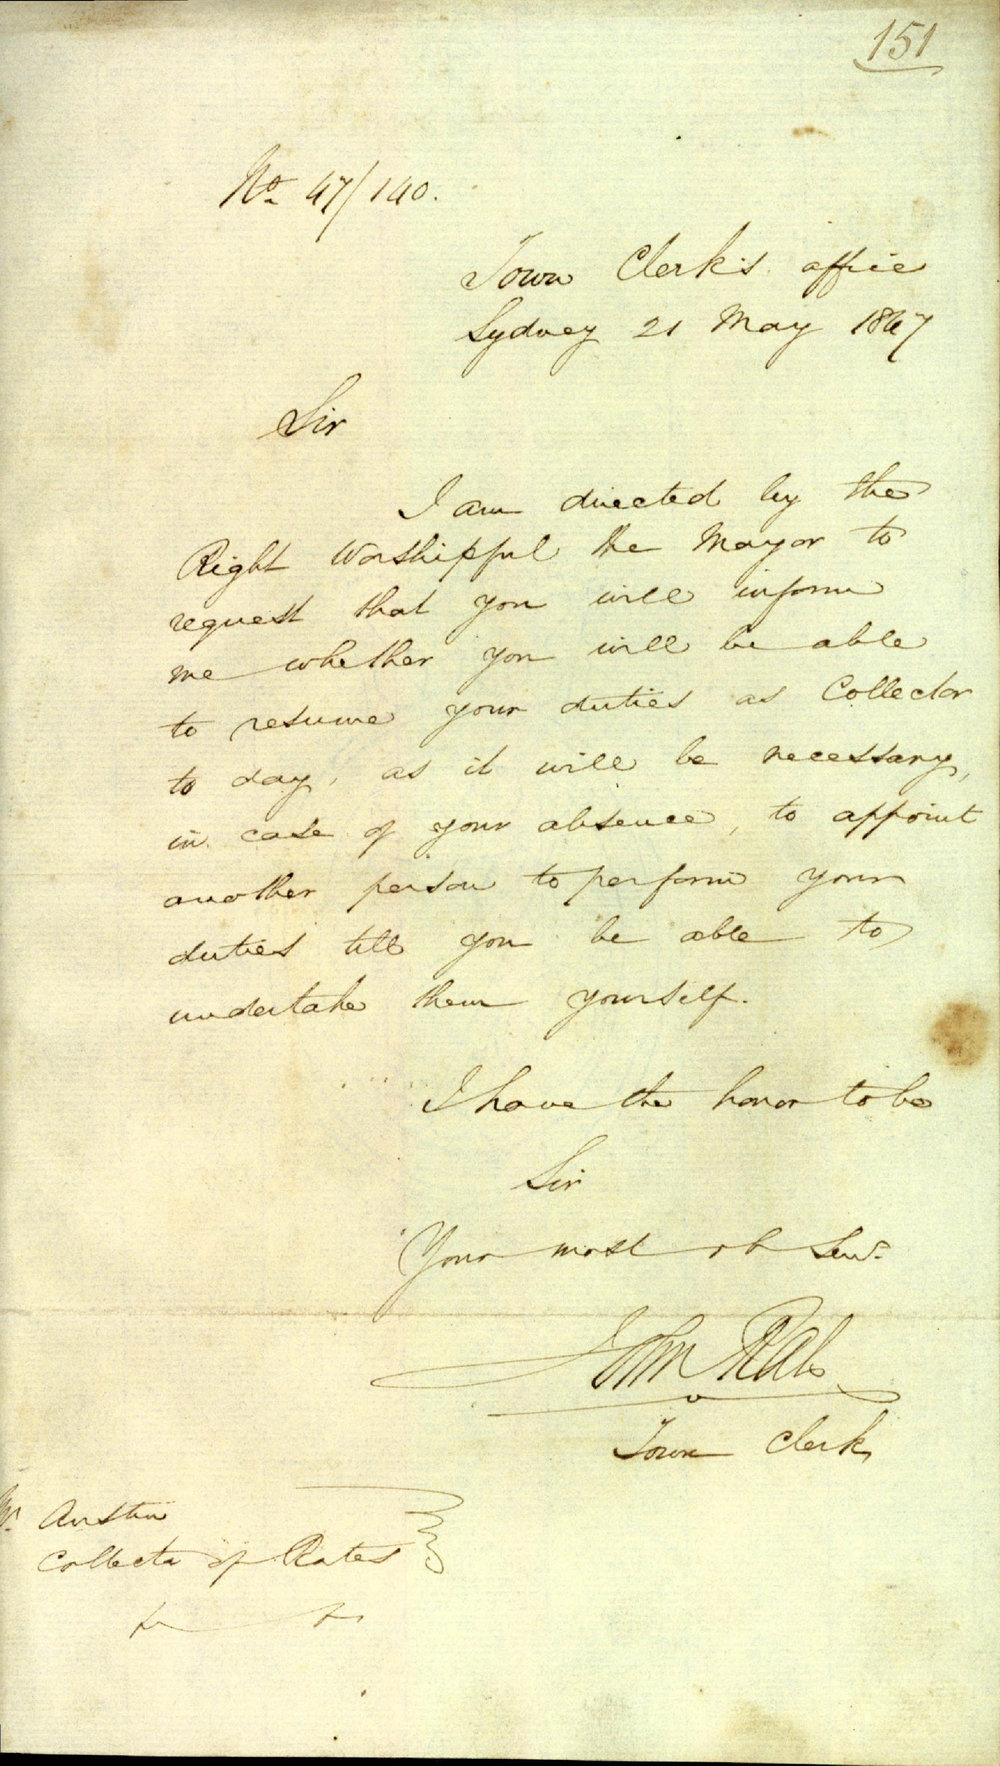 151
No. 47/140.
Town Clerk's office
Sydney 21 May 1847
Sir
I am directed by the
Right Worshipful the Mayor to
request that you will inform
me whether you will be able
to resume your duties as Collector
to day, as it will be necessary,
in case of your absence, to appoint
another person to perform your
duties till you be able to
undertake them yourself.
I have the honor to be
Sir
Your most ob Serv.
John Rae
Town Clerk
Mr. Austin
Collector of Rates